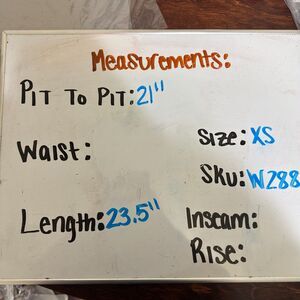 Measurements:
PIT TO PIT: 21"
Waist:
Size: XS
Sku: W288
Length: 23.5"
Inseam:
Rise: